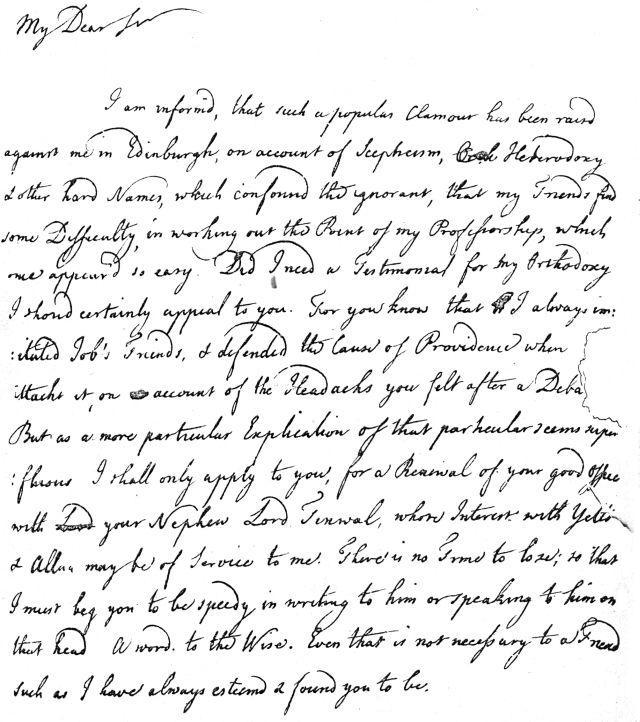 My Dear Sir
I am inform'd, that such a popular Clamour has been raisd
against me in Edinburgh, on account of Scepticism, Heterodoxy
& other hard Names, which confound the Ignorant, that my Friends find
some Difficulty, in working out the Point of my Professorship, which
once appear'd so easy. Did I need a Testimonial for my Orthodoxy
I shoud certainly appeal to you. For you know that I always im:
:itated Job's Friends, & defended the Cause of Providence when
attackt it, on account of the Headachs you felt after a Deba
But as a more particular Explication of that particular seems super
:fluous I shall only apply to you, for a Renewal of your good Offices
with your Nephew Lord Tinwal, whose Interest with Yetts
& Allan may be of Service to me. There is no Time to lose; so that
I must beg you to be speedy in writing to him or speaking to him on
that head A word to the Wise. Even that is not necessary to a Friend
such as I have always esteemd & found you to be.